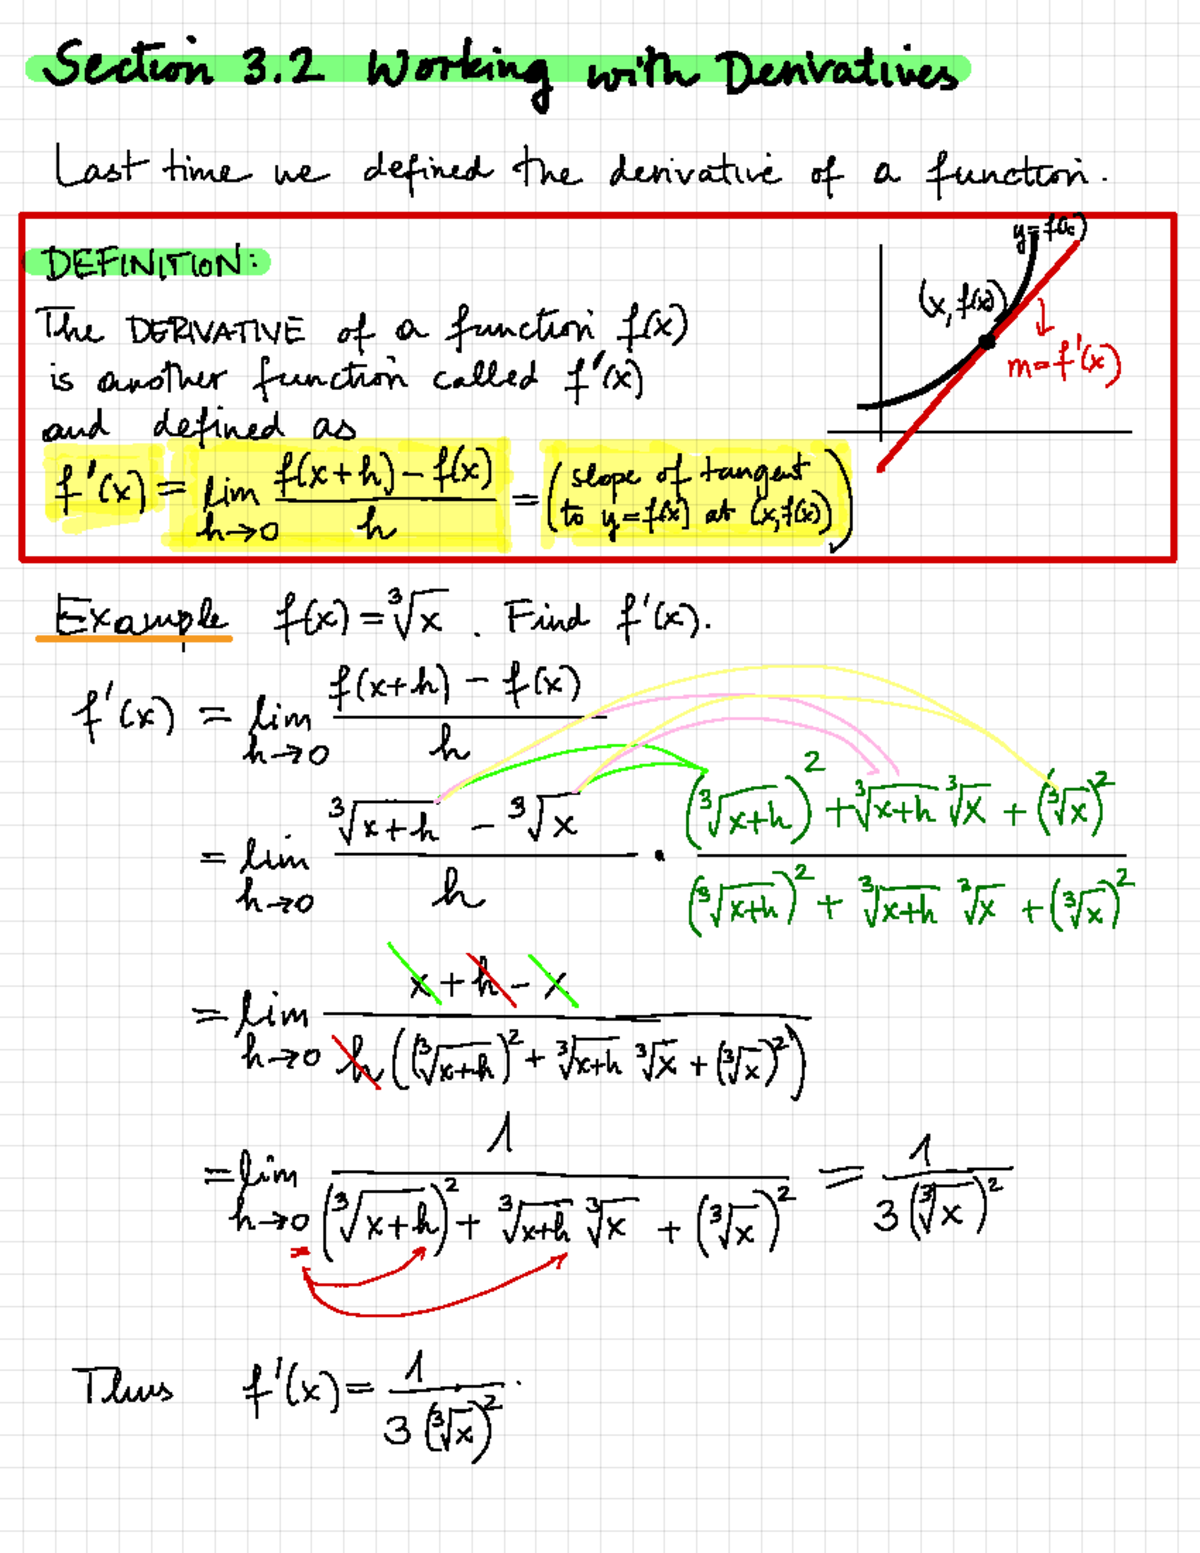 Section 3.2 Working with Derivatives
Last time we defined the derivative of a function.
DEFINITION:
The DERIVATIVE of a function f(x)
is another function called f'(x)
and defined as
f'(x) = lim_{h→0} (f(x+h) - f(x))/h = (slope of tangent
to y=f(x) at (x,f(x)))
y=f(x)
(x, f(x))
m=f'(x)
Example f(x) = ∛x . Find f'(x).
f'(x) = lim_{h→0} (f(x+h) - f(x))/h
= lim_{h→0} (∛(x+h) - ∛x)/h · ((∛(x+h))² + ∛(x+h) ∛x + (∛x)²)/((∛(x+h))² + ∛(x+h) ∛x + (∛x)²)
= lim_{h→0} (x+h-x)/(h((∛(x+h))² + ∛(x+h) ∛x + (∛x)²))
= lim_{h→0} 1/((∛(x+h))² + ∛(x+h) ∛x + (∛x)²) = 1/(3(∛x)²)
Thus f'(x) = 1/(3(∛x)²).